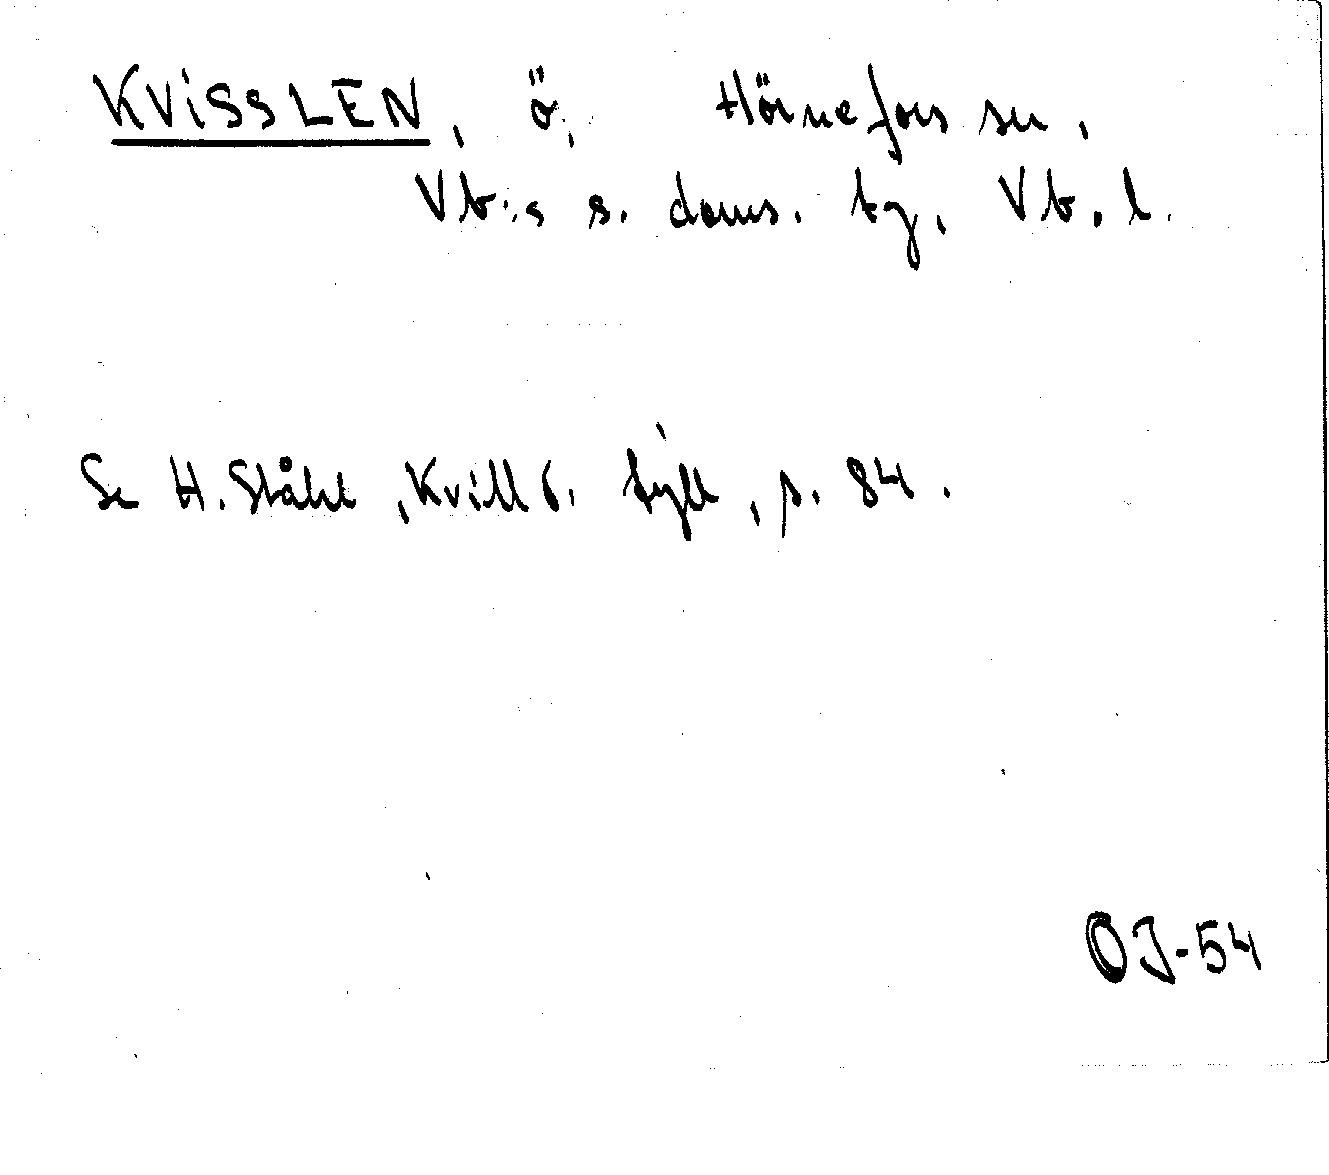 KVISSLEN, ö, Hörnefors sn,
Vb:s s. doms. tg, Vb. l.
Se H. Ståhl, Kvill o. tyll, s. 84.
OJ-54